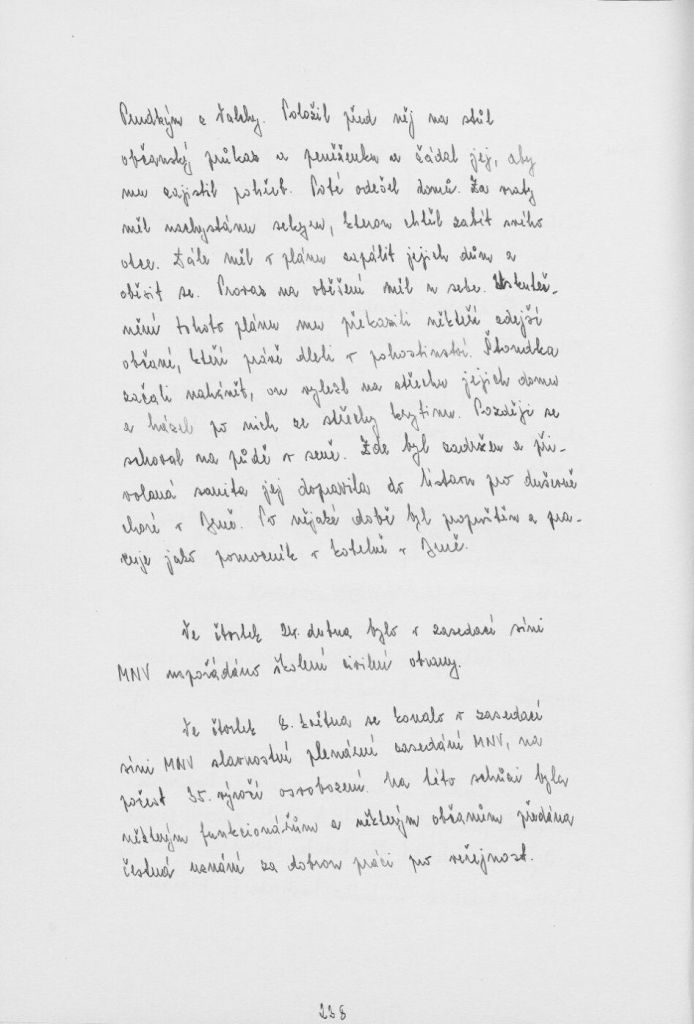 Prudkým z Valchy. Položil před něj na stůl
občanský průkaz a peněženku a žádal jej, aby
mu zajistil pohřeb. Poté odešel domů. Za vraty
měl nachystánu sekyru, kterou chtěl zabít svého
otce. Dále měl v plánu zapálit jejich dům a
oběsit se. Provaz na oběšení měl u sebe. Uskuteč-
nění tohoto plánu mu překazili někteří zdejší
občané, kteří právě dleli v pohostinství. Štondka
začali nahánět, on vylezl na střechu jejich domu
a házel po nich ze střechy krytinu. Později se
schoval na půdě v seně. Zde byl zadržen a při-
volaná sanita jej dopravila do ústavu pro duševně
choré v Brně. Po nějaké době byl propuštěn a pra-
cuje jako pomocník v kotelně v Brně.
Ve čtvrtek 24. dubna bylo v zasedací síni
MNV uspořádáno školení civilní obrany.
Ve čtvrtek 8. května se konalo v zasedací
síni MNV slavnostní plenární zasedání MNV, na
počest 35. výročí osvobození. Na této schůzi byla
některým funkcionářům a některým občanům předána
čestná uznání za dobrou práci pro veřejnost.
228